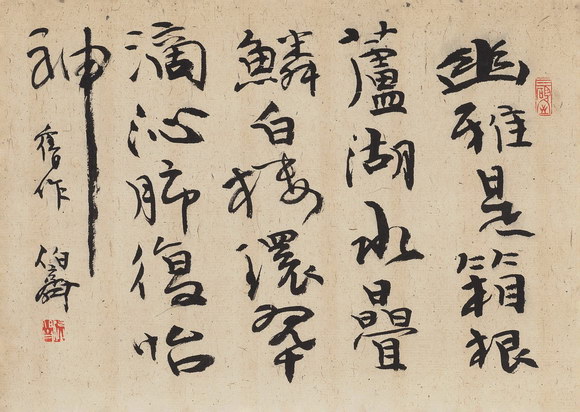 幽雅是箱根
蘆湖水疊
鱗白樓環翠
滴沁肺復怡
神
舊作 伯